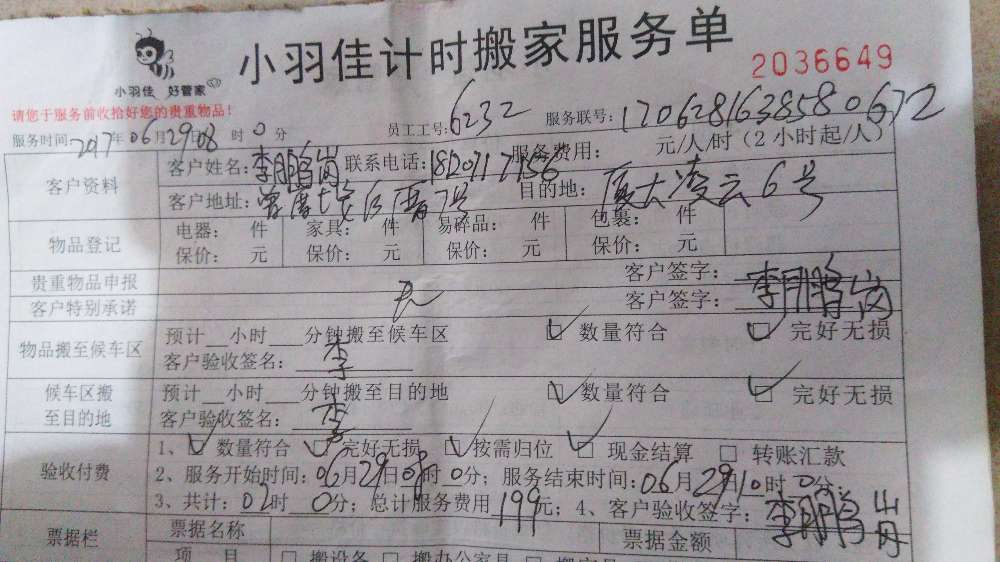 小羽佳计时搬家服务单
2036649
小羽佳 好管家
请您于服务前收拾好您的贵重物品!
服务时间: 2017年06月29日08时0分 员工工号: 6232 服务联号: 170628163858
服务费用: 元/人/时(2小时起/人)
客户资料 客户姓名: 李鹏 联系电话:
客户地址: 目的地: 厦大凌云6号
物品登记 电器: 件 家具: 件 易碎品: 件 包裹: 件
保价: 元 保价: 元 保价: 元 保价: 元
贵重物品申报 客户签字: 李鹏
客户特别承诺 无 客户签字:
物品搬至候车区 预计__小时___分钟搬至候车区 ☑ 数量符合 ☑ 完好无损
客户验收签名: 李
候车区搬至目的地 预计__小时___分钟搬至目的地 ☑ 数量符合 ☑ 完好无损
客户验收签名: 李
验收付费 1、☑ 数量符合 ☑ 完好无损 ☑ 按需归位 ☑ 现金结算 □ 转账汇款
2、服务开始时间: 06月29日08时0分; 服务结束时间: 06月29日10时0分;
3、共计: 02时0分; 总计服务费用199元; 4、客户验收签字: 李鹏
票据栏 票据名称 票据金额
项 目 □ 搬设备 □ 搬办公家具